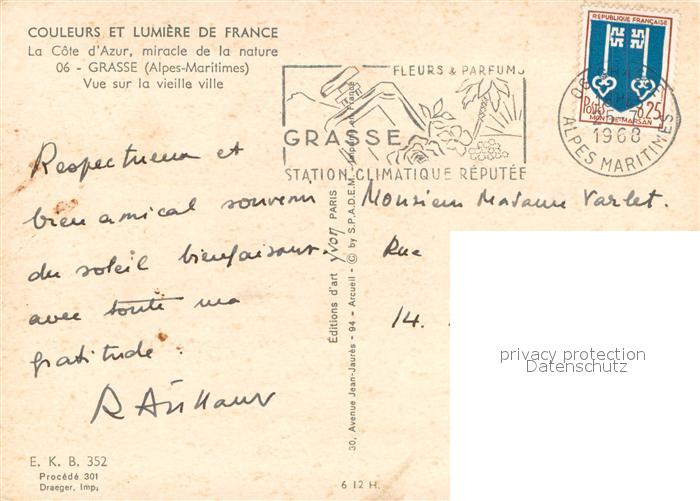 COULEURS ET LUMIÈRE DE FRANCE
La Côte d'Azur, miracle de la nature
06 - GRASSE (Alpes-Maritimes)
Vue sur la vieille ville
FLEURS & PARFUMS
GRASSE
STATION CLIMATIQUE RÉPUTÉE
REPUBLIQUE FRANÇAISE
Postes 0,25
MONT-DE-MARSAN
06
1968
ALPES MARITIMES
Respectueux et
bien amical souvenir
du soleil bienfaisant.
avec toute ma
gratitude.
Monsieur Madame Varlet.
Rue
14.
Editions d'art yvon PARIS
30, Avenue Jean-Jaurès - 94 - Arcueil - © by S.P.A.D.E.M. - Imprimé en France
privacy protection
Datenschutz
E. K. B. 352
Procédé 301
Draeger, Imp.
6 12 H.